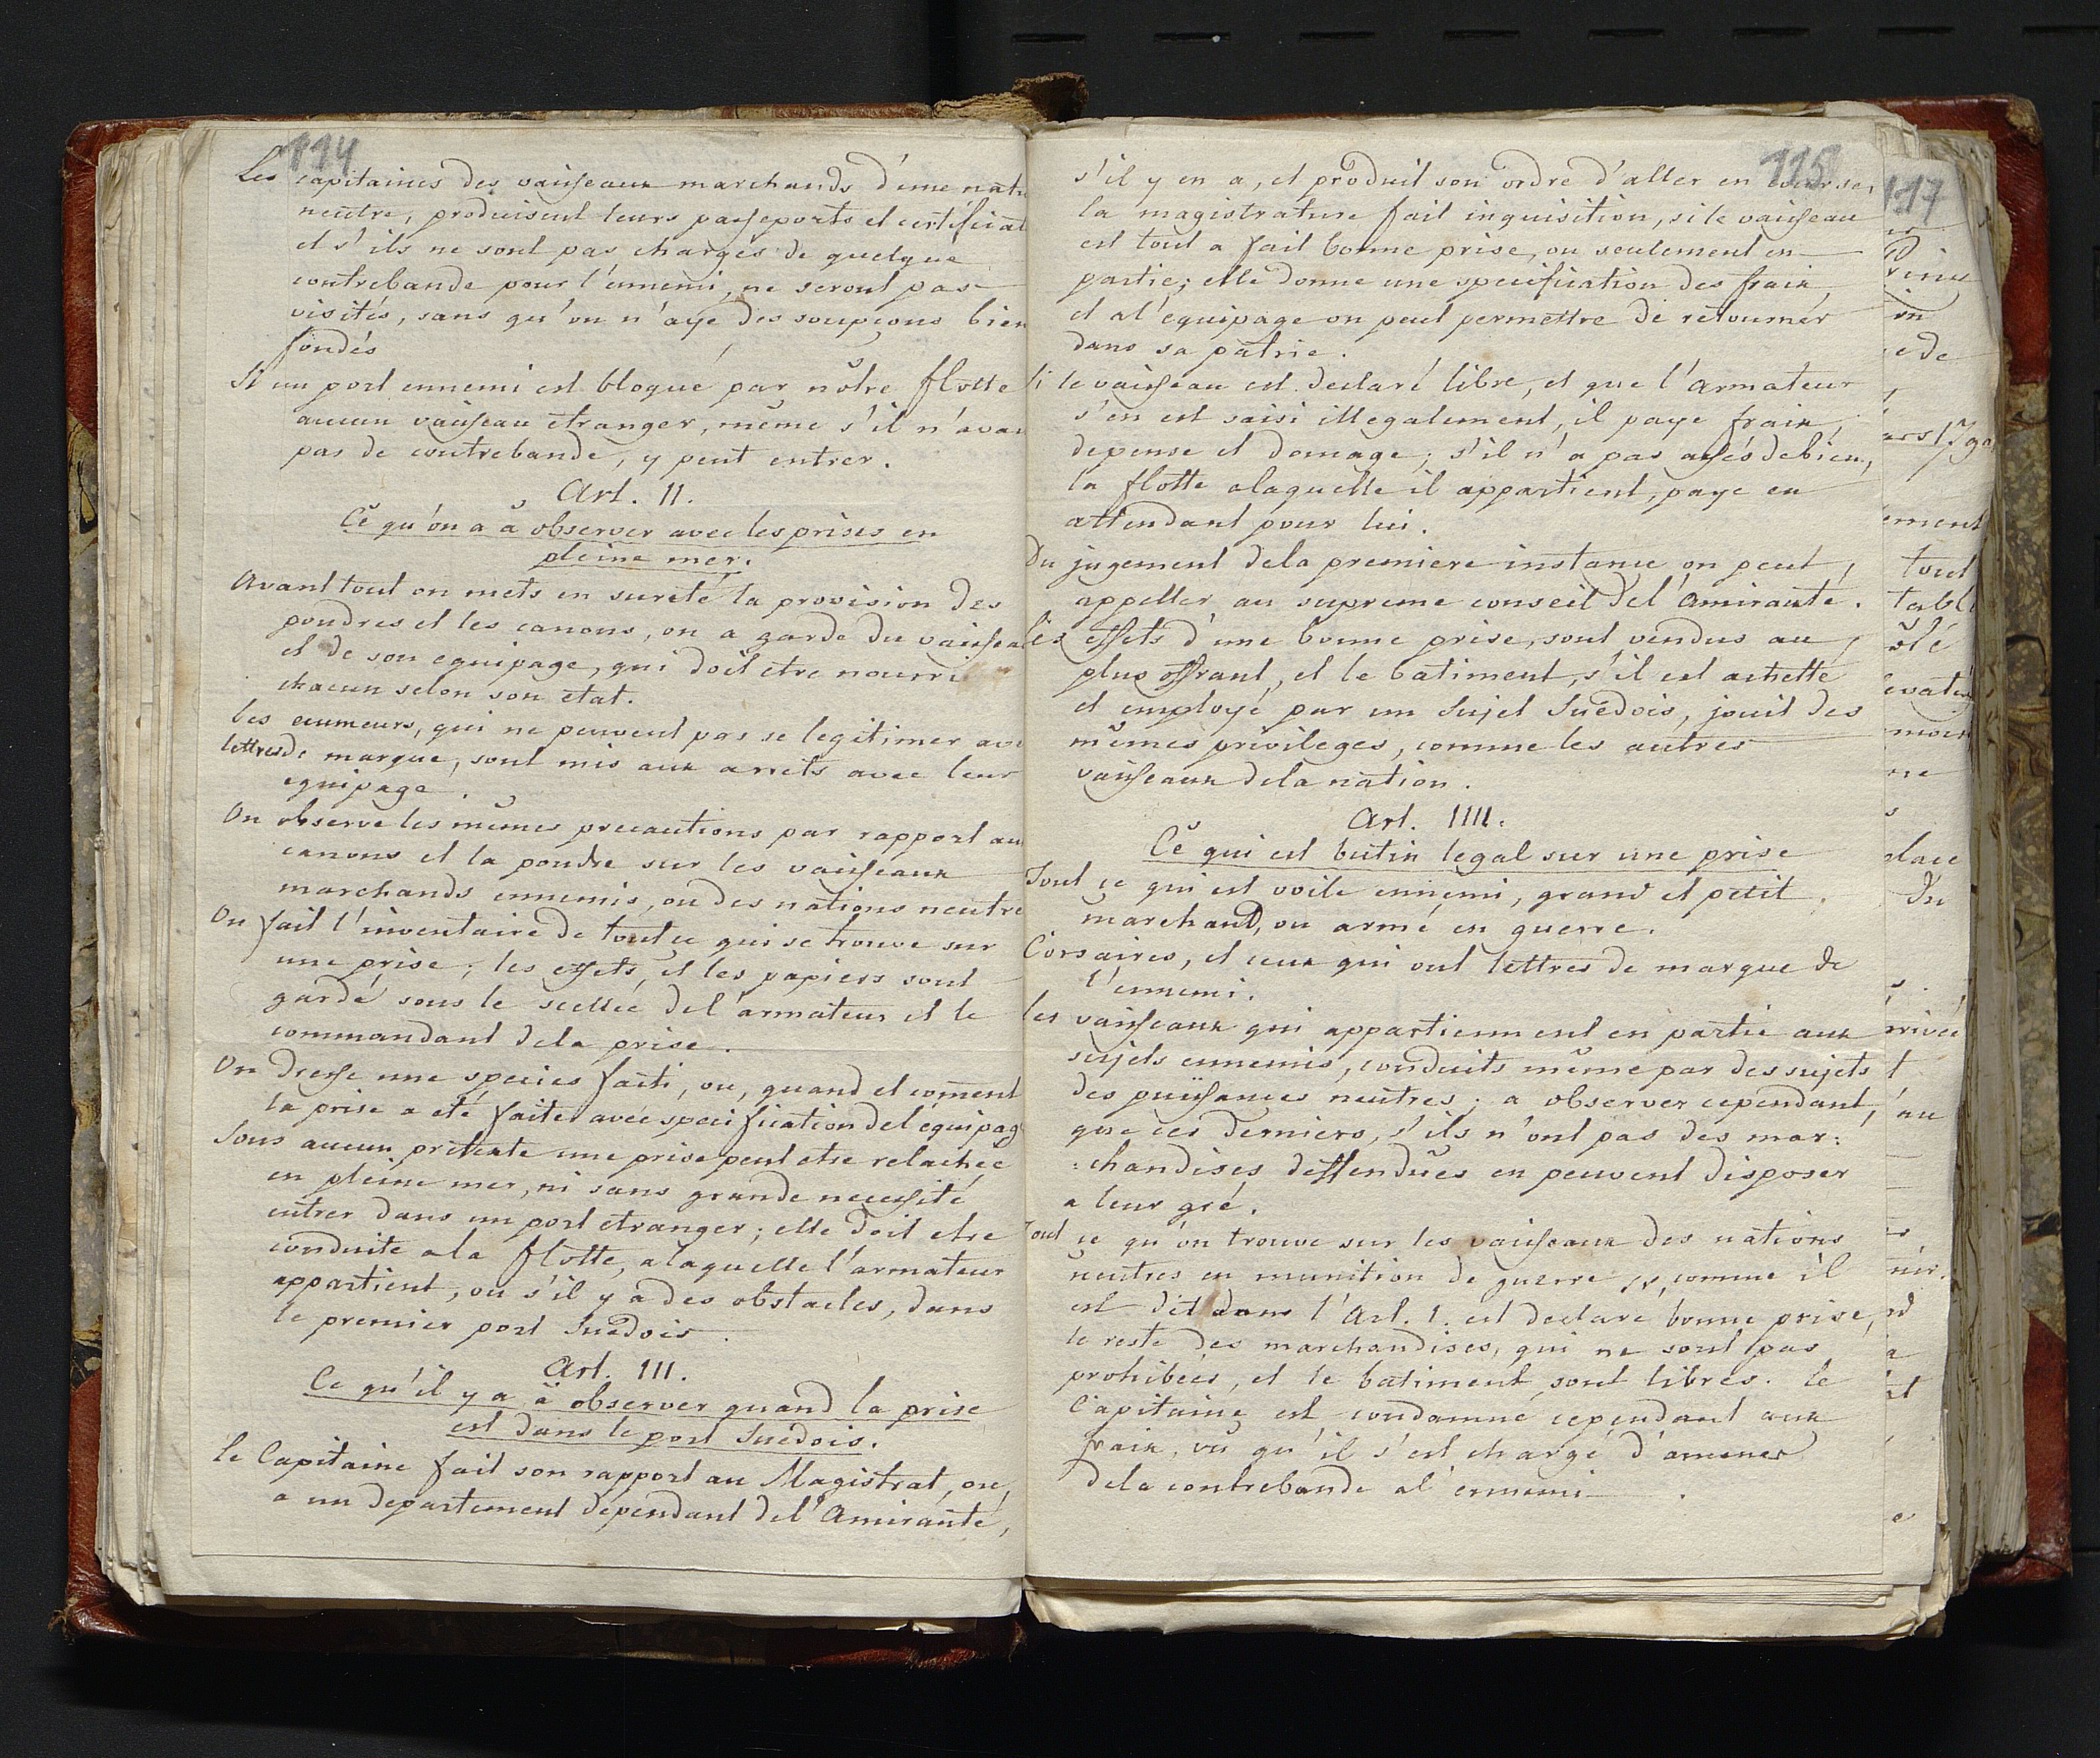 114
Les capitaines des vaisseaux marchands d'une nati
neutre, produisent leurs passeports et certificat
et s'ils ne sont pas chargés de quelque
contrebande pour l'ennemi, ne seront pas
visités, sans qu'on n'aye des soupçons bien
fondés
Si un port ennemi est bloqué par nôtre flotte
aucun vaisseau etranger, même s'il n'avai
pas de contrebande, y peut entrer.
Art. II.
Ce qu'on a à observer avec les prises en
pleine mer.
Avant tout on mets en sureté la provision des
poudres et les canons, on a garde du vaissea
et de son equipage, qui doit etre nourri
chacun selon son etat.
Les ecumeurs, qui ne peuvent pas se legitimer ave
lettres de marque, sont mis aux arrets avec leur
equipage.
On observe les mêmes precautions par rapport au
canons et la poudre sur les vaisseaux
marchands ennemis, ou des nations neutre
On fait l'inventaire de tout ce qui se trouve sur
une prise; les effets, et les papiers sont
gardé sous le scellée del'armateur et le
commandant dela prise.
On dresse une species facti, ou, quand et coment
la prise a eté faite avec specification del'équipag
Sous aucun pretexte une prise peut etre relachée
en pleine mer, ni sans grande necessité
entrer dans un port etranger; elle doit etre
conduite ala flotte, alaquelle l'armateur
appartient, ou s'il y a des obstacles, dans
le premier port Suedois.
Art. III.
Ce qu'il y a à observer quand la prise
est dans le port Suedois.
le Capitaine fait son rapport au Magistrat, ou,
a un departement dependant del'Amirauté,
115
s'il y en a, et produit son ordre d'aller en course,
la magistrature fait inquisition, si le vaisseau
est tout a fait bonne prise, ou seulement en
partie; elle donne une specification des fraix,
et al'equipage on peut permettre de retourner
dans sa patrie.
Si le vaisseau est declaré libre, et que l'armateur
s'en est saisi illegalement, il paye fraix,
depense et domage; s'il n'a pas assés debien,
la flotte alaquelle il appartient, paye en
attendant pour lui.
Du jugement dela premiere instance on peut,
appeller au supreme conseil del'Amirauté.
les effets d'une bonne prise, sont vendus au,
plus offrant, et le batiment, s'il est achetté
et employé par un Sujet Suédois, jouit des
mêmes privileges, comme les autres
vaisseaux dela nation.
Art. IIII.
Ce qui est butin legal sur une prise
Tout ce qui est voile ennemi, grand et petit,
marchand, ou armé en guerre.
Corsaires, et ceux qui ont lettres de marque de
l'ennemi.
les vaisseaux qui appartiennent en partie aux
sujets ennemis, conduits même par des sujets
des puissances neutres; a observer cependant,
que ces derniers, s'ils n'ont pas des mar:
:chandises deffendües en peuvent disposer
a leur gré.
Tout ce qu'on trouve sur les vaisseaux des nations
neutres en munition de guerre, comme il
est dit dans l'Art. 1. est declaré bonne prise,
le reste des marchandises, qui ne sont pas
prohibées, et le batiment, sont libres. le
Capitaine est condamné cependant aux
fraix, vû qu'il s'est chargé d'amener
dela contrebande al'ennemi.
117